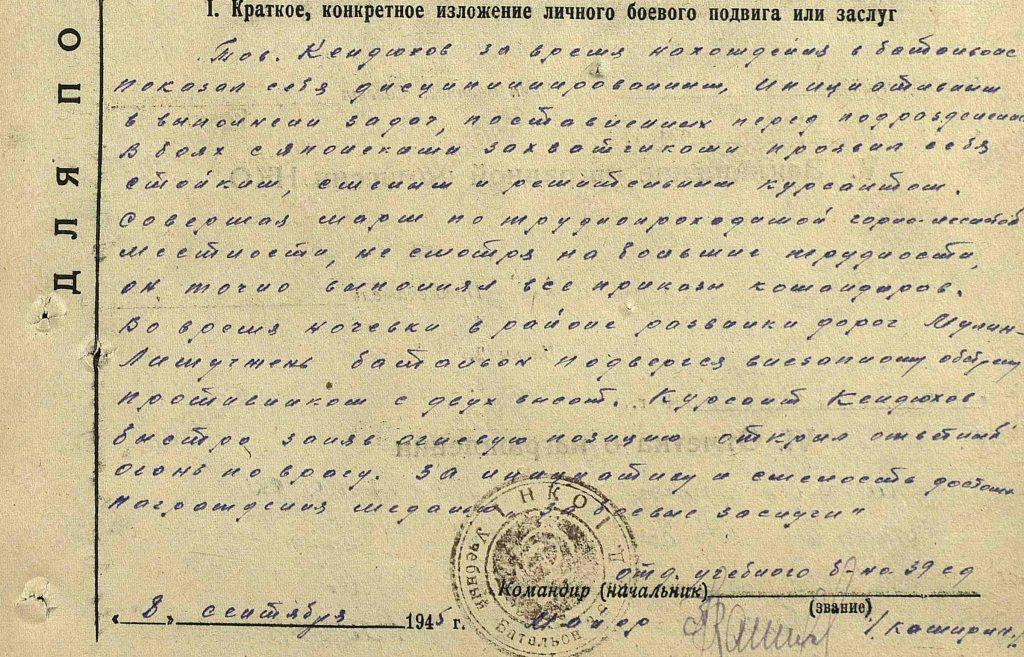 ДЛЯ ПО
I. Краткое, конкретное изложение личного боевого подвига или заслуг
Тов. Кендюхов за время нахождения в батальоне
показал себя дисциплинированным, инициативным
в выполнении задач, поставленных перед подразделением
В боях с японскими захватчиками проявил себя
стойким, смелым и решительным курсантом.
Совершая марш по труднопроходимой горно-лесистой
местности, не смотря на большие трудности,
он точно выполнял все приказы командиров.
Во время ночевки в районе развилки дорог Мулин-
Лишучжень батальон подвергся внезапному обстрелу
противником с двух высот. Курсант Кендюхов
быстро заняв огневую позицию открыл ответный
огонь по врагу. За инициативу и смелость достоин
награждения медалью „За боевые заслуги"
отд. учебного б-на 39 сд
Командир (начальник)
(звание)
„8" сентября 1945 г. Майор /Каширин/
НКО
Учебный
Батальон